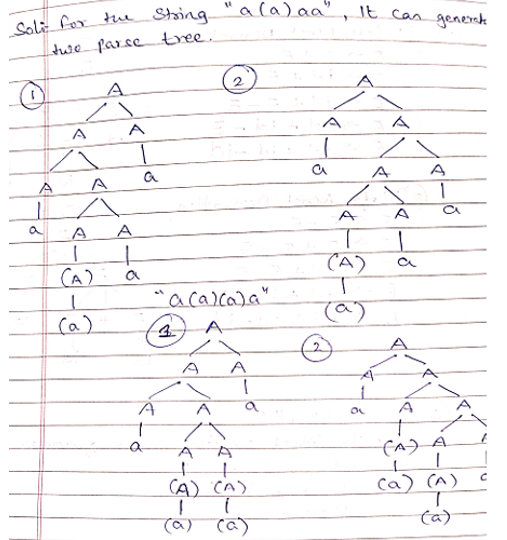 Sol:- for the string "a(a)aa", It can generate
two parse tree.
① ②
A A
A A A A
A A a a A A
a A A A A a
(A) a (A) a
(a) (a)
"a(a)(a)a"
① A ② A
A A A A
A A a a A A
a A A (A) A A
(A) (A) (a) (A)
(a) (a) (a)